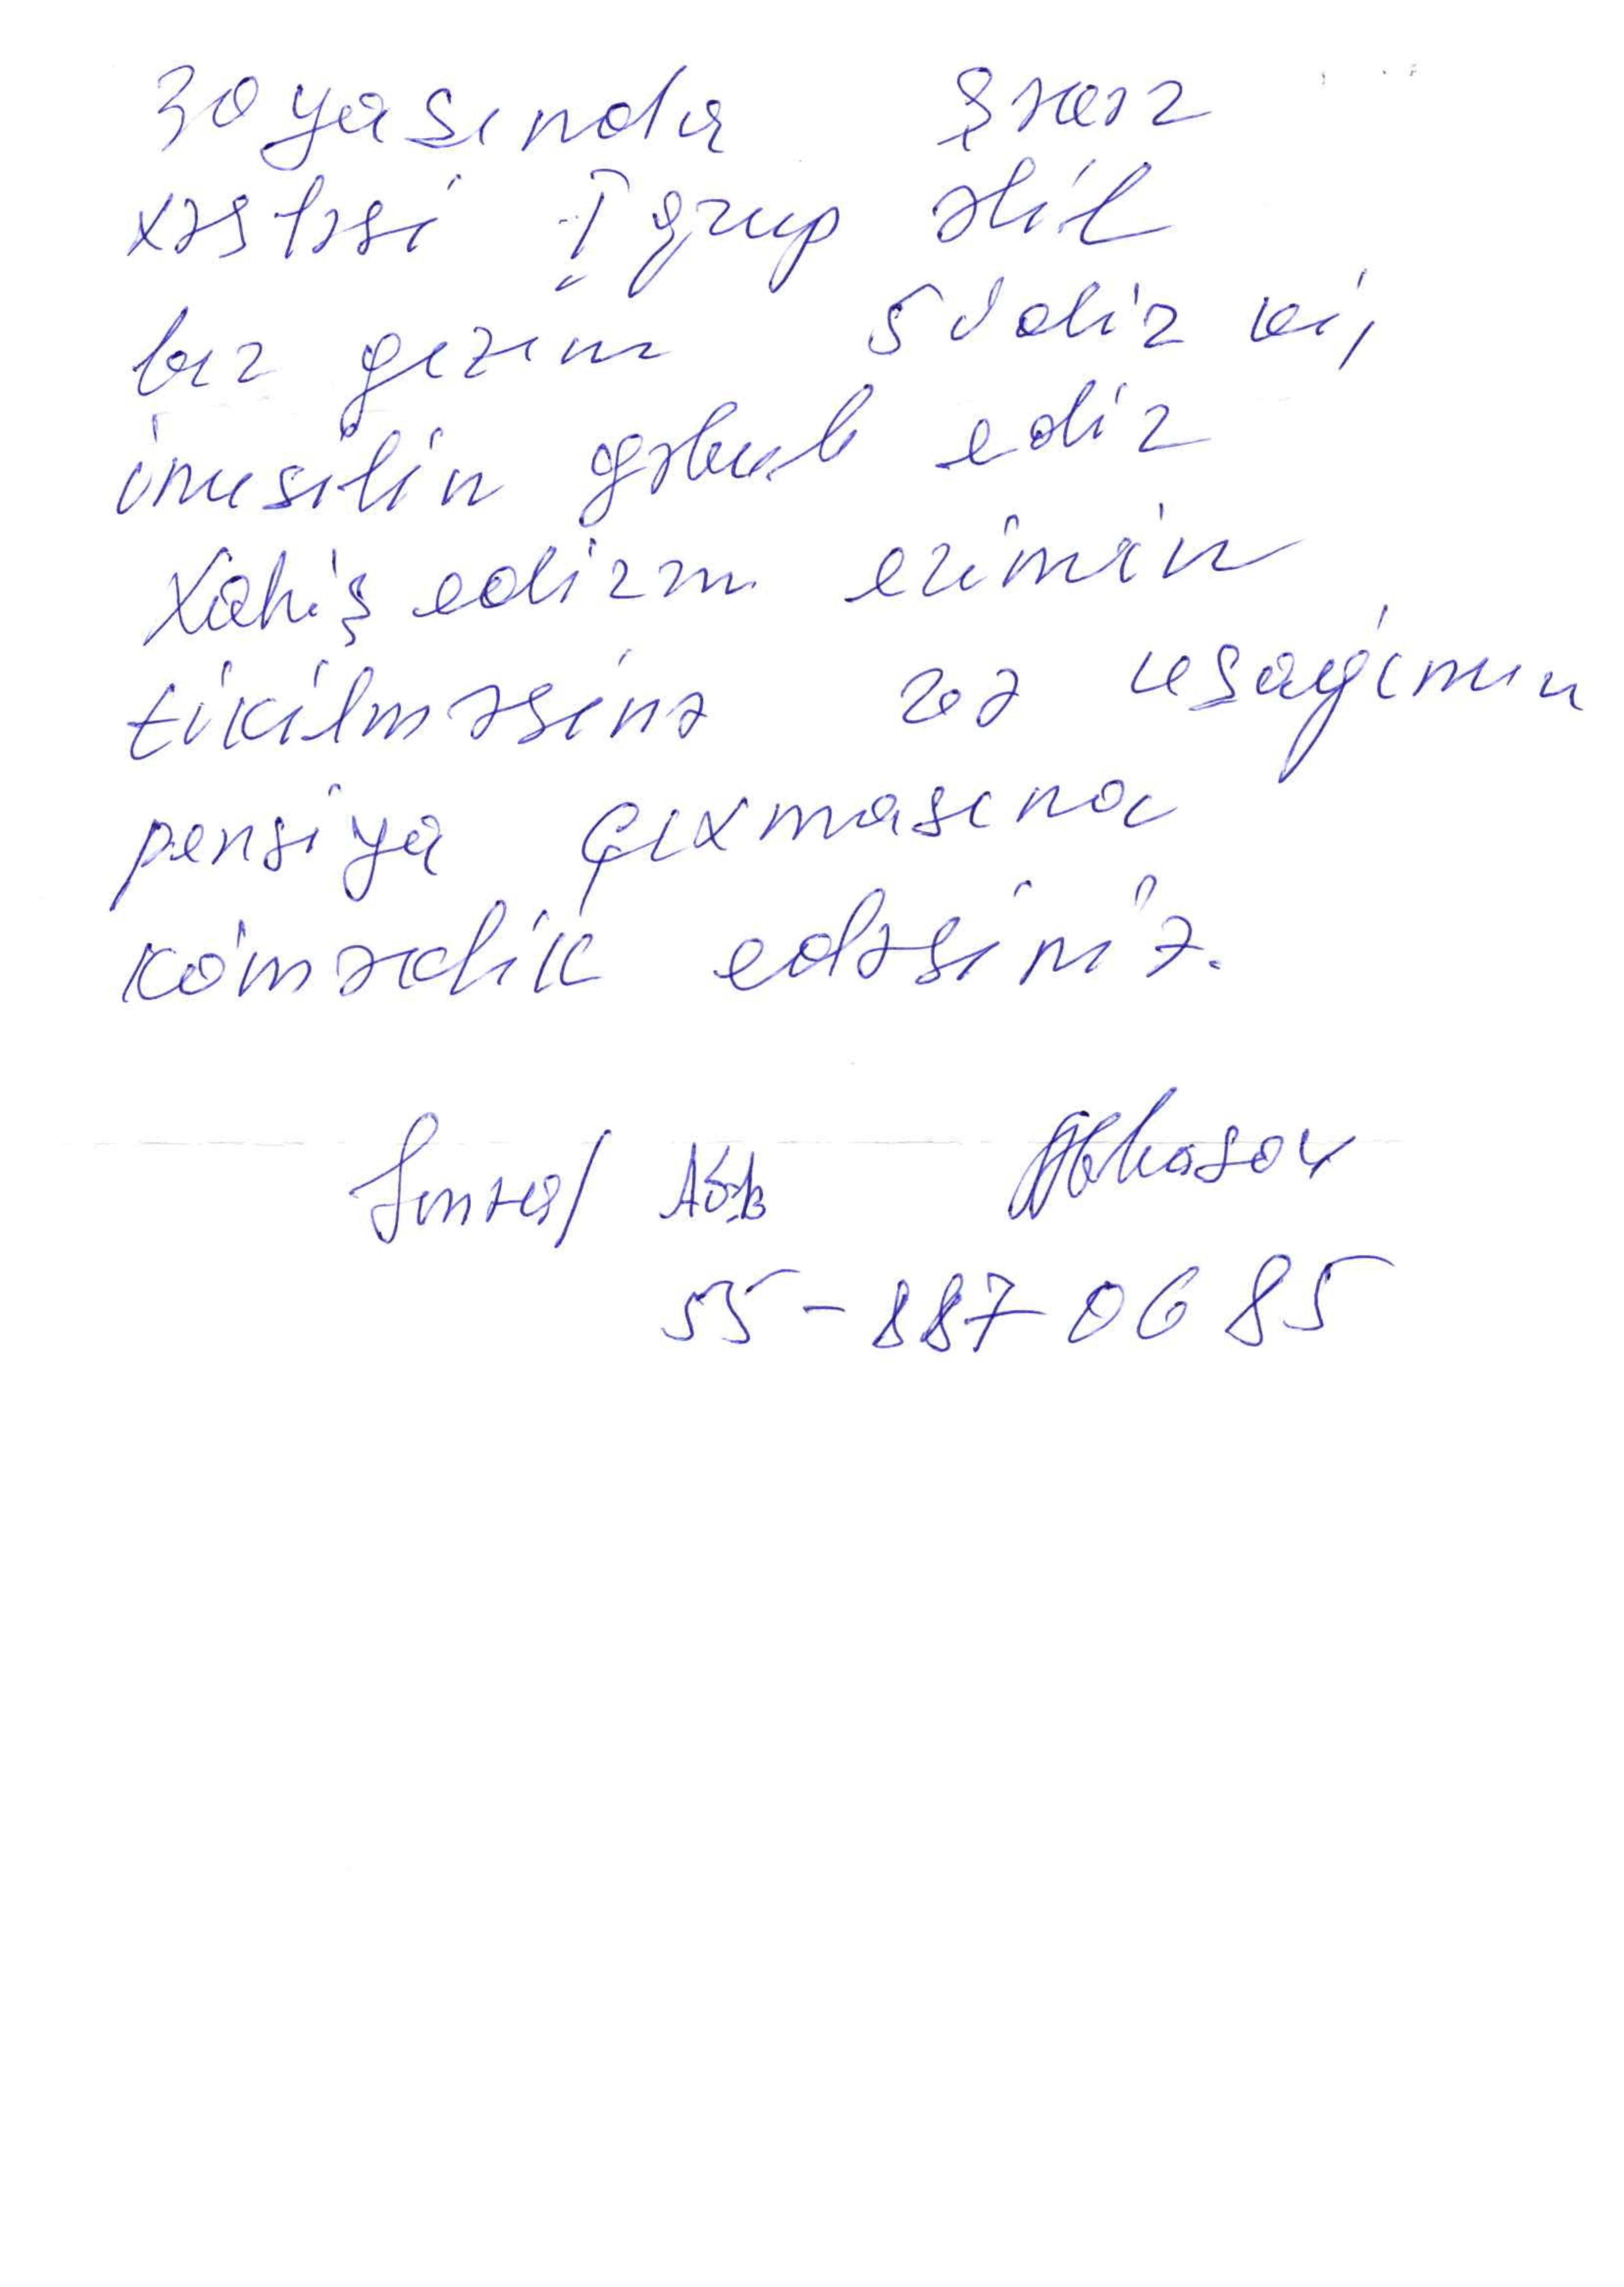 30 yaşında şəkər
xəstəsi I grup əlil
bir qızım
insulin qəbul edir
Xahiş edirəm evimin
tikilməsinə və uşağımın
pensiya çıxmasına
köməklik edəsiniz.
İmza/ Abb Abbasov
55-887 06 85